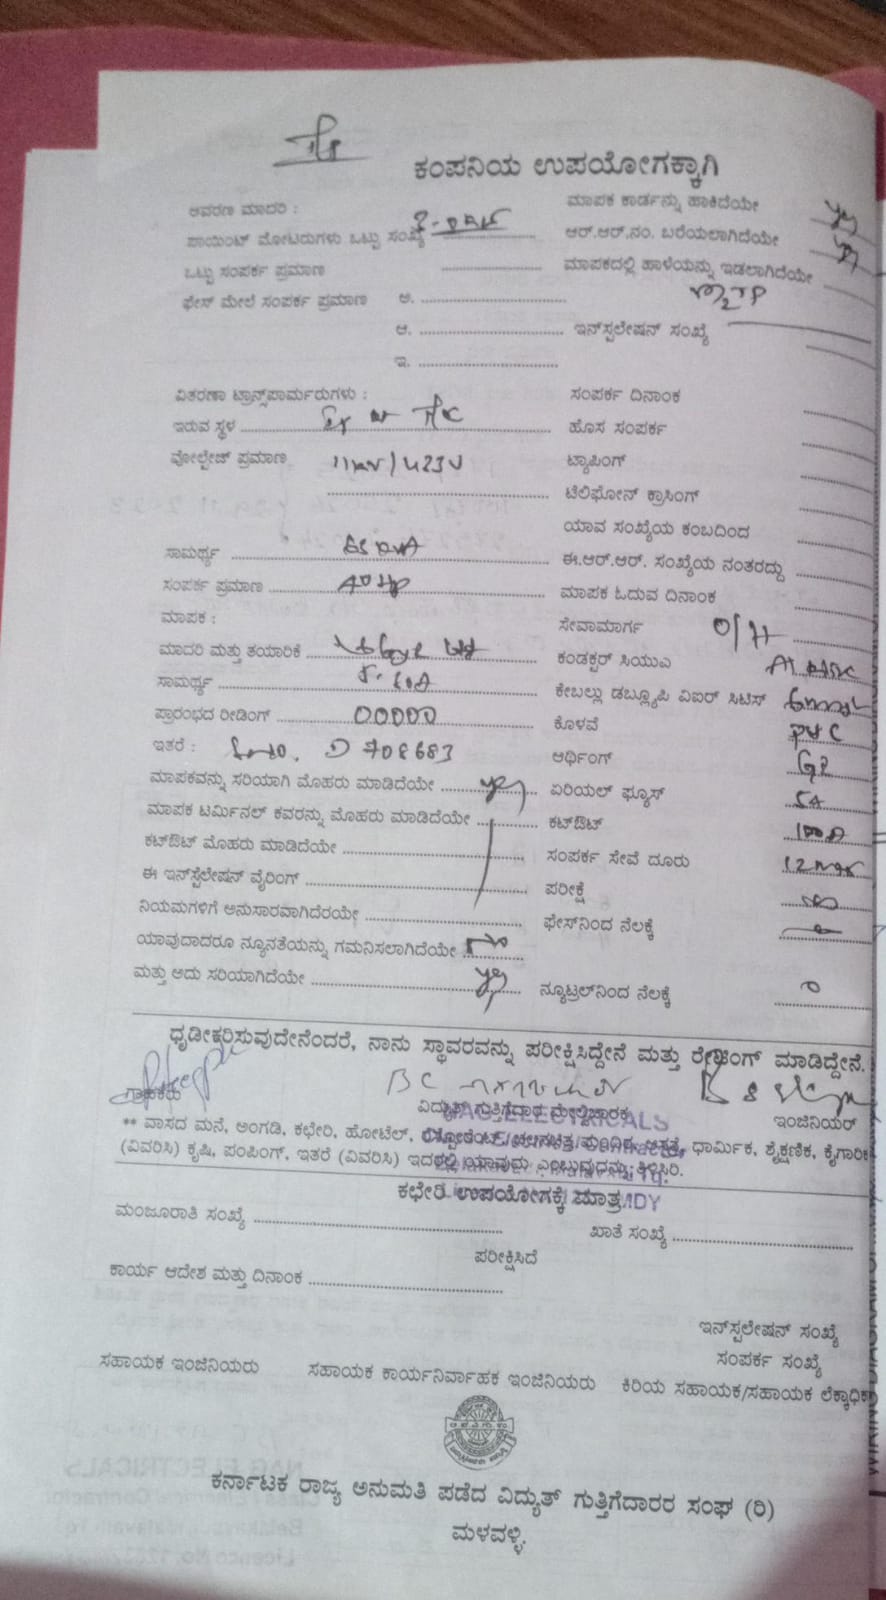 ಕಂಪನಿಯ ಉಪಯೋಗಕ್ಕಾಗಿ
ಆವರಣ ಮಾದರಿ : ಮಾಪಕ ಕಾರ್ಡನ್ನು ಹಾಕಿದೆಯೇ yes
ಪಾಯಿಂಟ್ ಮೋಟರುಗಳು ಒಟ್ಟು ಸಂಖ್ಯೆ ಆರ್.ಆರ್.ನಂ. ಬರೆಯಲಾಗಿದೆಯೇ yes
ಒಟ್ಟು ಸಂಪರ್ಕ ಪ್ರಮಾಣ ಮಾಪಕದಲ್ಲಿ ಹಾಳೆಯನ್ನು ಇಡಲಾಗಿದೆಯೇ
ಫೇಸ್ ಮೇಲೆ ಸಂಪರ್ಕ ಪ್ರಮಾಣ ಅ.
ಆ. ಇನ್‌ಸ್ಟಲೇಷನ್ ಸಂಖ್ಯೆ
ಇ.
ವಿತರಣಾ ಟ್ರಾನ್ಸ್‌ಪಾರ್ಮರುಗಳು : ಸಂಪರ್ಕ ದಿನಾಂಕ
ಇರುವ ಸ್ಥಳ ಹೊಸ ಸಂಪರ್ಕ
ವೋಲ್ಟೇಜ್ ಪ್ರಮಾಣ 11kv/423V ಟ್ಯಾಪಿಂಗ್
ಟೆಲಿಫೋನ್ ಕ್ರಾಸಿಂಗ್
ಯಾವ ಸಂಖ್ಯೆಯ ಕಂಬದಿಂದ
ಸಾಮರ್ಥ್ಯ ಈ.ಆರ್.ಆರ್. ಸಂಖ್ಯೆಯ ನಂತರದ್ದು
ಸಂಪರ್ಕ ಪ್ರಮಾಣ ಮಾಪಕ ಓದುವ ದಿನಾಂಕ
ಮಾಪಕ : ಸೇವಾಮಾರ್ಗ O/H
ಮಾದರಿ ಮತ್ತು ತಯಾರಿಕೆ ಕಂಡಕ್ಟರ್ ಸಿಯುಎ
ಸಾಮರ್ಥ್ಯ ಕೇಬಲ್ಲು ಡಬ್ಲ್ಯೂಪಿ ವಿಐರ್ ಸಿಟಿಸ್
ಪ್ರಾರಂಭದ ರೀಡಿಂಗ್ 00000 ಕೊಳವೆ PVC
ಇತರೆ : D 708683 ಆರ್ಥಿಂಗ್ GP
ಮಾಪಕವನ್ನು ಸರಿಯಾಗಿ ಮೊಹರು ಮಾಡಿದೆಯೇ yes ಏರಿಯಲ್ ಫ್ಯೂಸ್ 5A
ಮಾಪಕ ಟರ್ಮಿನಲ್ ಕವರನ್ನು ಮೊಹರು ಮಾಡಿದೆಯೇ ಕಟ್‌ಔಟ್ 100A
ಕಟ್‌ಔಟ್ ಮೊಹರು ಮಾಡಿದೆಯೇ ಸಂಪರ್ಕ ಸೇವೆ ದೂರು
ಈ ಇನ್‌ಸ್ಟೆಲೇಷನ್ ವೈರಿಂಗ್ ಪರೀಕ್ಷೆ
ನಿಯಮಗಳಿಗೆ ಅನುಸಾರವಾಗಿದೆರಯೇ ಫೇಸ್‌ನಿಂದ ನೆಲಕ್ಕೆ
ಯಾವುದಾದರೂ ನ್ಯೂನತೆಯನ್ನು ಗಮನಿಸಲಾಗಿದೆಯೇ No
ಮತ್ತು ಅದು ಸರಿಯಾಗಿದೆಯೇ yes ನ್ಯೂಟ್ರಲ್‌ನಿಂದ ನೆಲಕ್ಕೆ
ಧೃಡೀಕರಿಸುವುದೇನೆಂದರೆ, ನಾನು ಸ್ಥಾವರವನ್ನು ಪರೀಕ್ಷಿಸಿದ್ದೇನೆ ಮತ್ತು ರೇಟಿಂಗ್ ಮಾಡಿದ್ದೇನೆ.
ಗ್ರಾಹಕರು ವಿದ್ಯುತ್ ಗುತ್ತಿಗೆದಾರ ಮೇಲ್ವಿಚಾರಕ ಇಂಜಿನಿಯರ್
NAG ELECTRICALS
** ವಾಸದ ಮನೆ, ಅಂಗಡಿ, ಕಛೇರಿ, ಹೋಟೆಲ್, ಧಾರ್ಮಿಕ, ಶೈಕ್ಷಣಿಕ, ಕೈಗಾರಿಕ
(ವಿವರಿಸಿ) ಕೃಷಿ, ಪಂಪಿಂಗ್, ಇತರೆ (ವಿವರಿಸಿ) ಇದರಲ್ಲಿ ಯಾವುದು ಎಂಬುವುದನ್ನು ತಿಳಿಸಿರಿ.
ಕಛೇರಿ ಉಪಯೋಗಕ್ಕೆ ಮಾತ್ರ
ಮಂಜೂರಾತಿ ಸಂಖ್ಯೆ ಖಾತೆ ಸಂಖ್ಯೆ
ಪರೀಕ್ಷಿಸಿದೆ
ಕಾರ್ಯ ಆದೇಶ ಮತ್ತು ದಿನಾಂಕ
ಇನ್‌ಸ್ಟಲೇಷನ್ ಸಂಖ್ಯೆ
ಸಂಪರ್ಕ ಸಂಖ್ಯೆ
ಸಹಾಯಕ ಇಂಜಿನಿಯರು ಸಹಾಯಕ ಕಾರ್ಯನಿರ್ವಾಹಕ ಇಂಜಿನಿಯರು ಕಿರಿಯ ಸಹಾಯಕ/ಸಹಾಯಕ ಲೆಕ್ಕಾಧಿಕ
ಕರ್ನಾಟಕ ರಾಜ್ಯ ಅನುಮತಿ ಪಡೆದ ವಿದ್ಯುತ್ ಗುತ್ತಿಗೆದಾರರ ಸಂಘ (ರಿ)
ಮಳವಳ್ಳಿ.